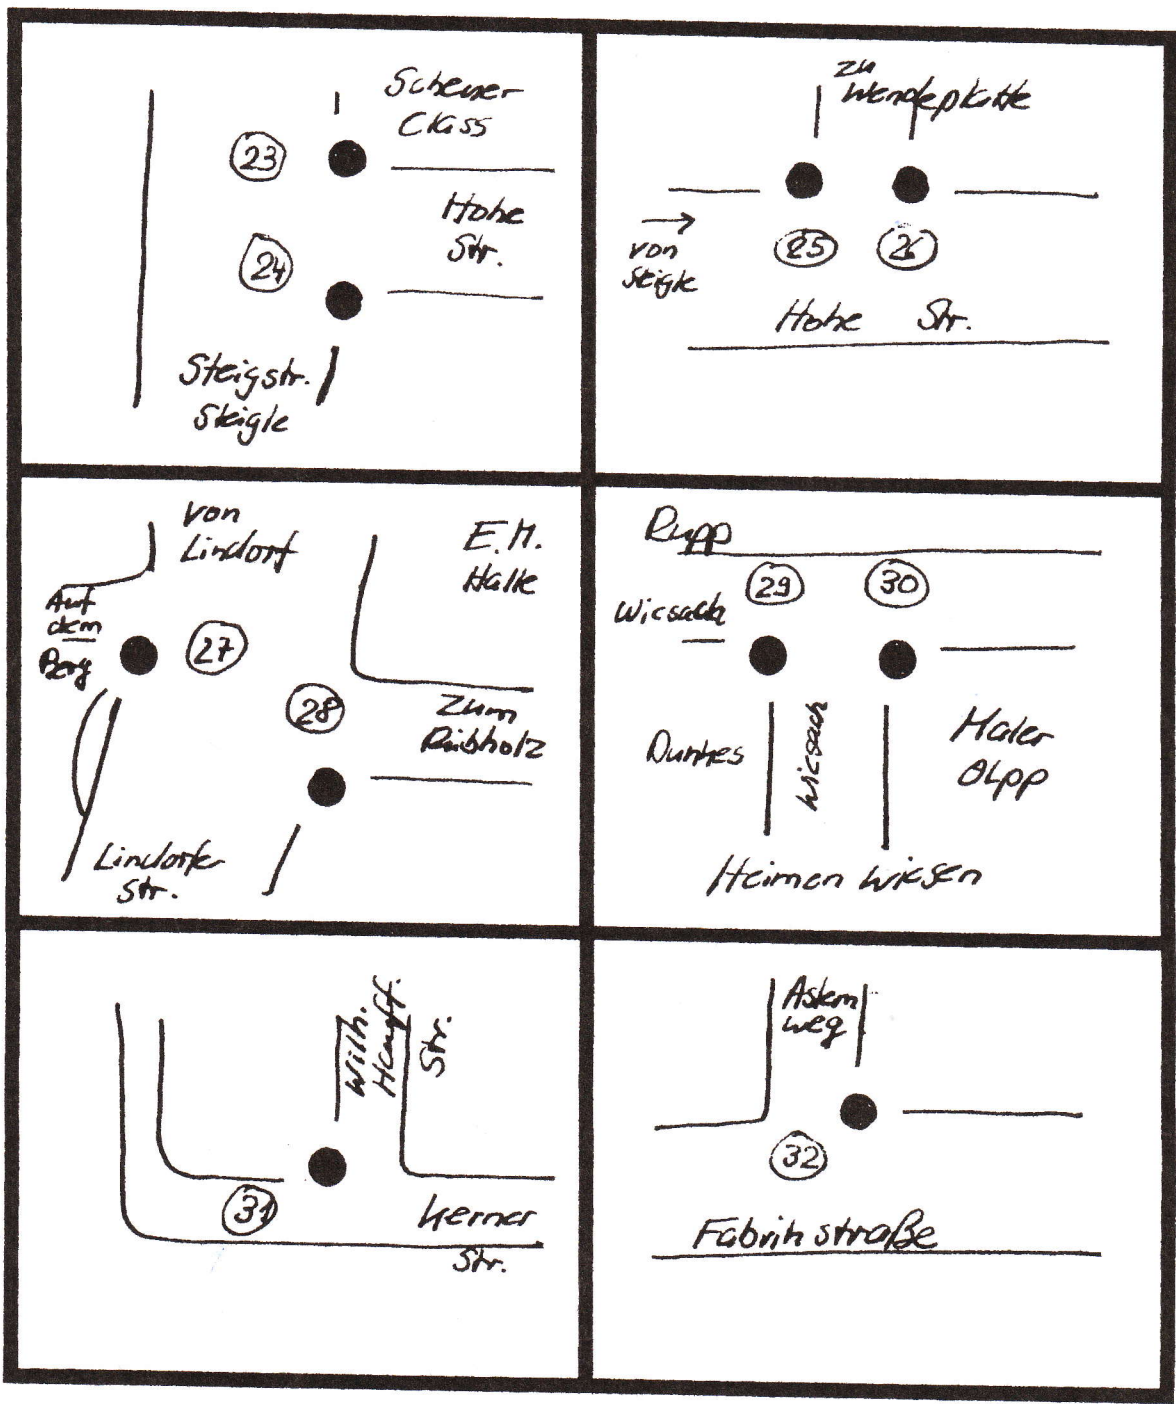 Scheuer
Class
23
Hohe
Str.
24
Steigstr.
Steigle
zu
Wendeplatte
von
Steigle
25
26
Hohe Str.
von
Lindorf
E.M.
Halle
Auf
dem
Berg
27
28
Zum
Rübholz
Lindorfer
Str.
Rupp
29
30
Wiesach
Dunkes
Wiesach
Maler
OLpp
Heimen Wiesen
Wilh.
Hauff.
Str.
31
Kerner
Str.
Astern
weg
32
Fabrikstraße